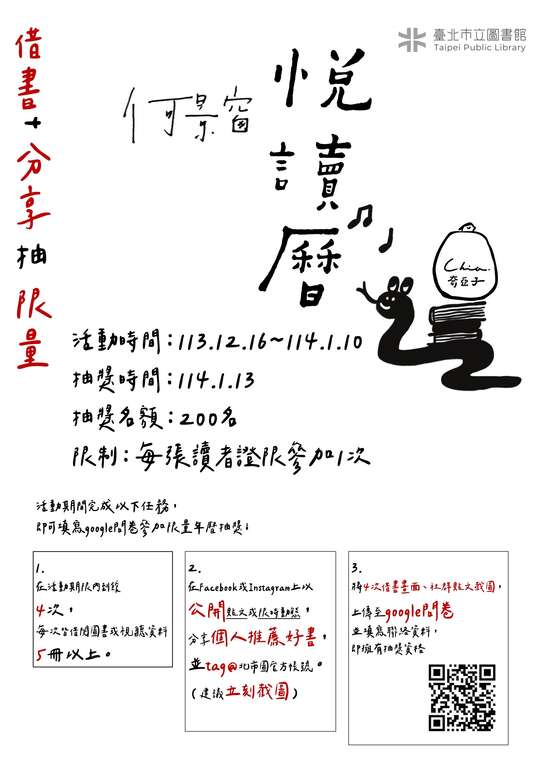 臺北市立圖書館
Taipei Public Library
借書+分享抽限量
何景窗
悅讀曆
Chia.
奇亞子
活動時間：113.12.16~114.1.10
抽獎時間：114.1.13
抽獎名額：200名
限制：每張讀者證限參加1次
活動期間完成以下任務，
即可填寫google問卷參加限量年曆抽獎：
1.
在活動期限內到館
4次，
每次皆借閱圖書或視聽資料
5冊以上。
2.
在Facebook或Instagram上以
公開貼文或限時動態，
分享個人推薦好書，
並tag@北市圖官方帳號。
(建議立刻截圖)
3.
將4次借書畫面、社群貼文截圖，
上傳至google問卷
並填寫聯絡資料，
即擁有抽獎資格